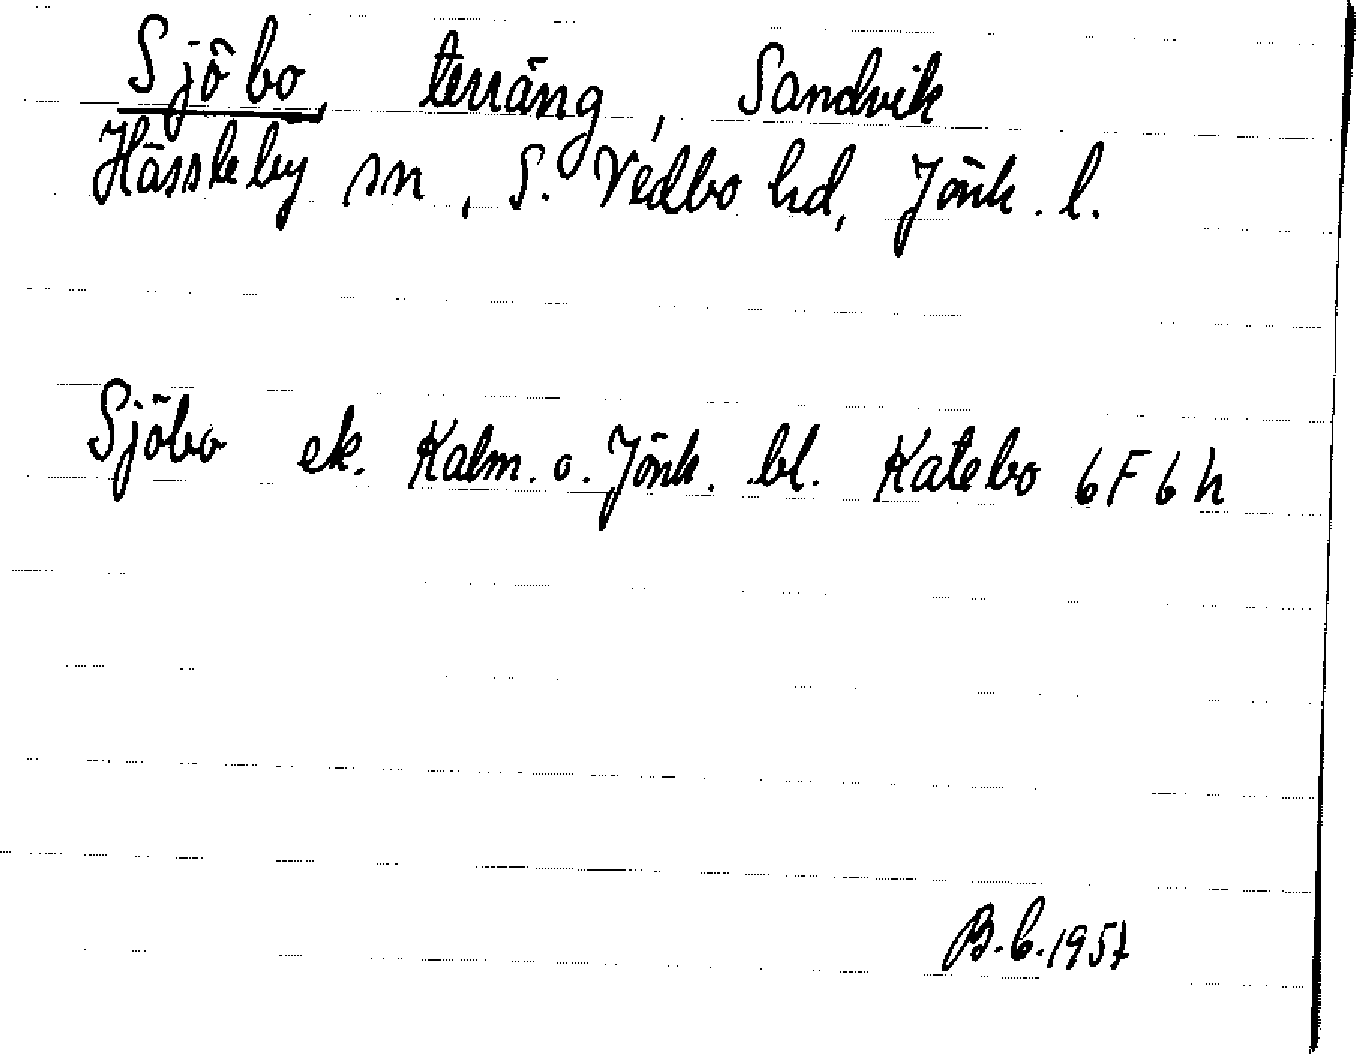 Sjöbo, terräng, Sandvik
Hässleby sn, S. Vedbo hd, Jönk. l.
Sjöbo ek. Kalm. o. Jönk. bl. Katebo 6F6h
B.C. 1957